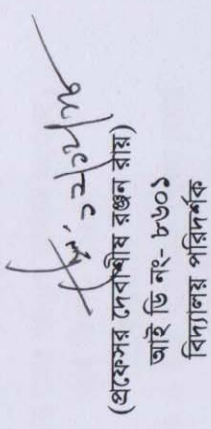 ১২/১২/২৪
(প্রফেসর দেবাশীষ রঞ্জন রায়)
আই ডি নং- ৮৬০১
বিদ্যালয় পরিদর্শক